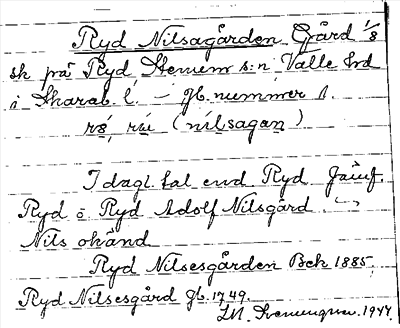 Ryd Nilsagården Gård 1/8
sk på Ryd, Stenum s:n Valle hd
i Skarab. l. – jb. nummer 1.
rɷ́, rú (nilsagan)
I dagl. tal end. Ryd. Jämf.
Ryd o Ryd Adolf Nilsgård.
Nils okänd
Ryd Nilsesgården Bek 1885.
Ryd Nilsesgård jb. 1749.
1944.